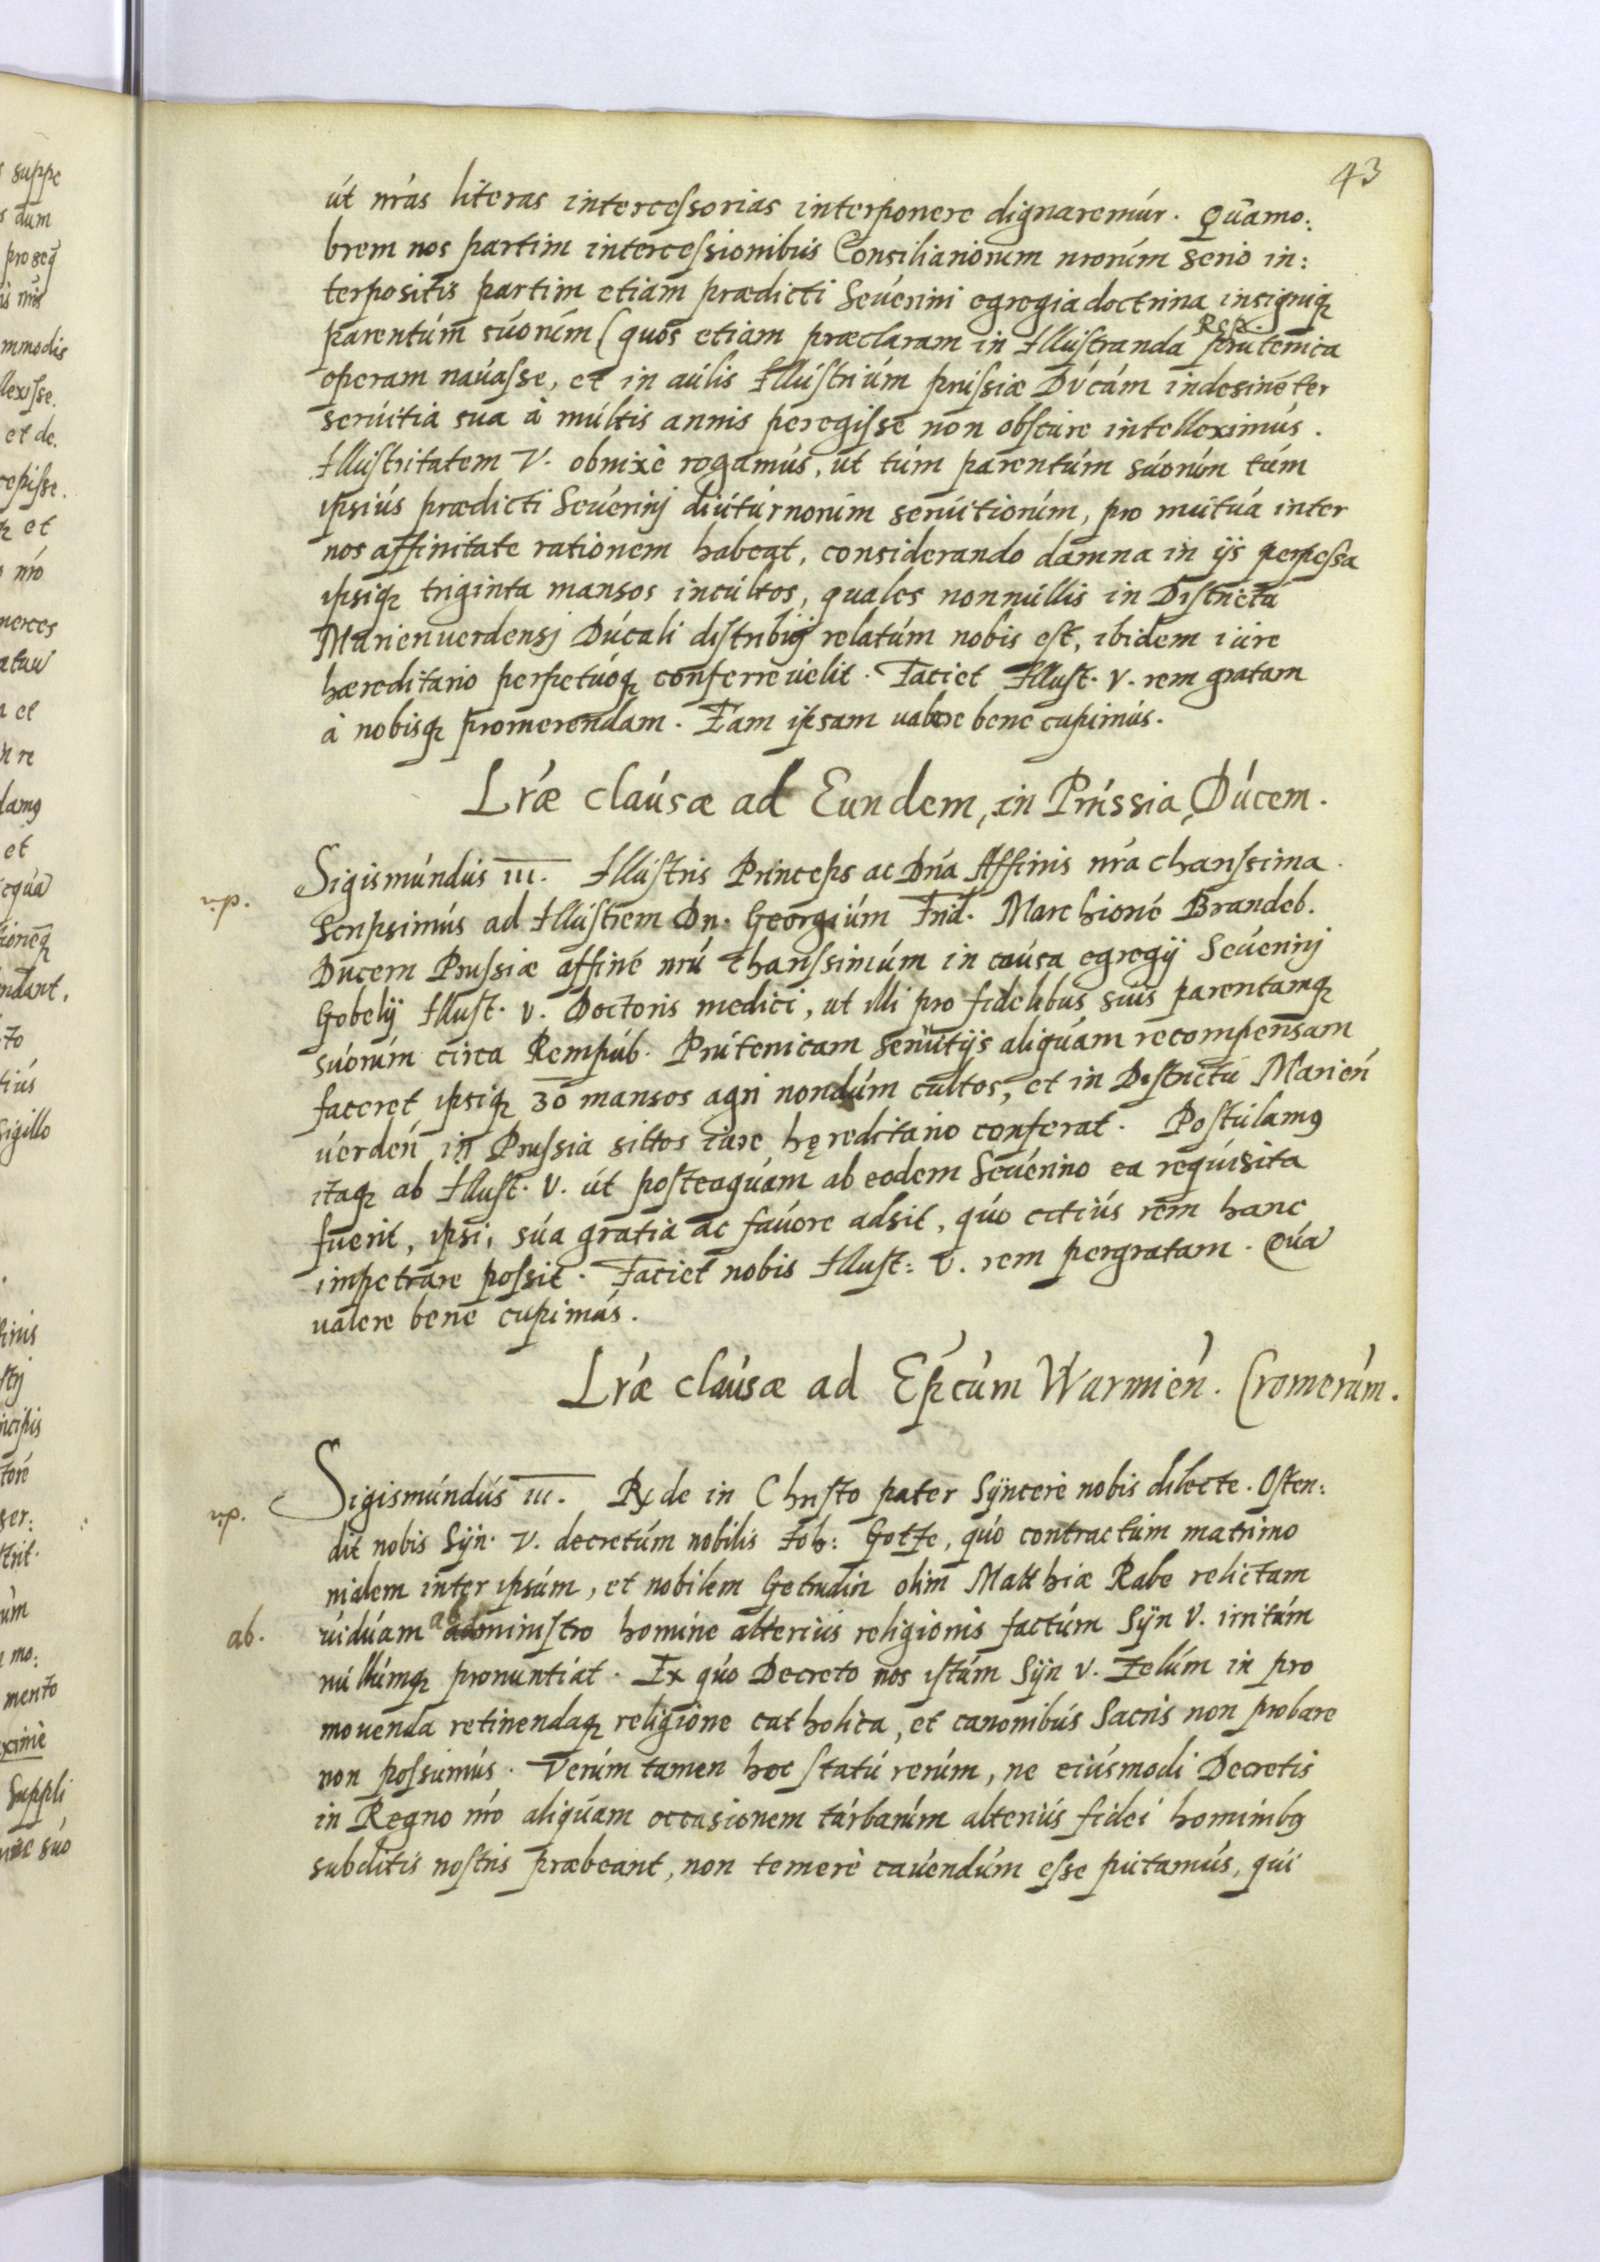 43
út nr̃as literas intercessorias interponere dignaremúr. Quamo:
brem nos partim intercessionibus Consiliariorum nrorúm serio in:
terpositis partim etiam prædicti Seúerini egregia doctrina insigniq;
parentúm súorúm (quos etiam præclaram in Illústranda Rep. prútenica
operam naúasse, et in aúlis Illústriúm prússiæ Dúcúm indesinẽter
serúitia sua à múltis annis peregisse non obscúre intelleximús.
Illústritatem V. obnixè rogamús, út túm parentúm súorúm túm
ipsiús prædicti Seúerinj diútúrnorúm serúitiorúm, pro mútúa inter
nos affinitate rationem habeat, considerando damna in ijs perpessa
ipsiq; triginta mansos incúltos, quales nonnúllis in Districtú
Marienuerdensj Dúcali distribúj relatúm nobis est, ibidem iúre
hæreditario perpetúoq; conferre uelit. Faciet Illust. V. rem gratam
à nobisq; promerendam. Eam ipsam ualere bene cupimús.
Lr̃æ claúsæ ad Eundem, in Prússia, Dúcem.
Sigismúndús III. Illústris Princeps ac Dñã Affinis nr̃a charissima.
Scripsimús ad Illústrem Dn. Georgiúm Frid. Marchionẽ Brandeb.
Ducem Prussiæ affinẽ nrú charissimúm in caúsa egregij Seúerinj
Gobelij Illust. V. Doctoris medici, ut illi pro fidelibus suis parentúmq;
súorúm circa Rempúb. Prútenicam serúitijs aliqúam recompensam
faceret ipsiq; 30 mansos agri nondúm cúltos, et in Districtú Mariẽn
úerdeń in Prussia sittos iúre hęreditario conferat. Postúlamꝰ
itaq; ab Illust. V. út posteaqúam ab eodem Seúerino ea reqúisita
fuerit, ipsi, súa gratia ac faúore adsit, qúo citiús rem hanc
impetrare possit. Faciet nobis Illust: V. rem pergratam. Qúã
ualere bene cupimús.
Lr̃æ claúsæ ad Ep̃cúm Warmień. Cromerúm.
Sigismúndús III. Rx̃de in Christo pater Sÿncerè nobis dilecte. Osten:
dit nobis Sÿn. V. decretúm nobilis Joh: Gotze, qúo contractúm matrimo
nialem inter ipsúm, et nobilem Getrudin olim Matthiæ Rabe relictam
úidúam a ministro homine alteriús religionis factúm Sÿn V. irritúm
núllúmq; pronuntiat. Ex qúo Decreto nos istúm Sÿn V. Zelúm in pro
mouenda retinendaq; religione catholica, et canonibús Sacris non probare
non possúmús. Verúm tamen hoc statú rerúm, ne eiúsmodi Decretis
in Regno nr̃o aliqúam occasionem túrbarúm alteriús fidei hominibꝰ
subditis nostris præbeant, non temerè caúendúm esse pútamús, qúi